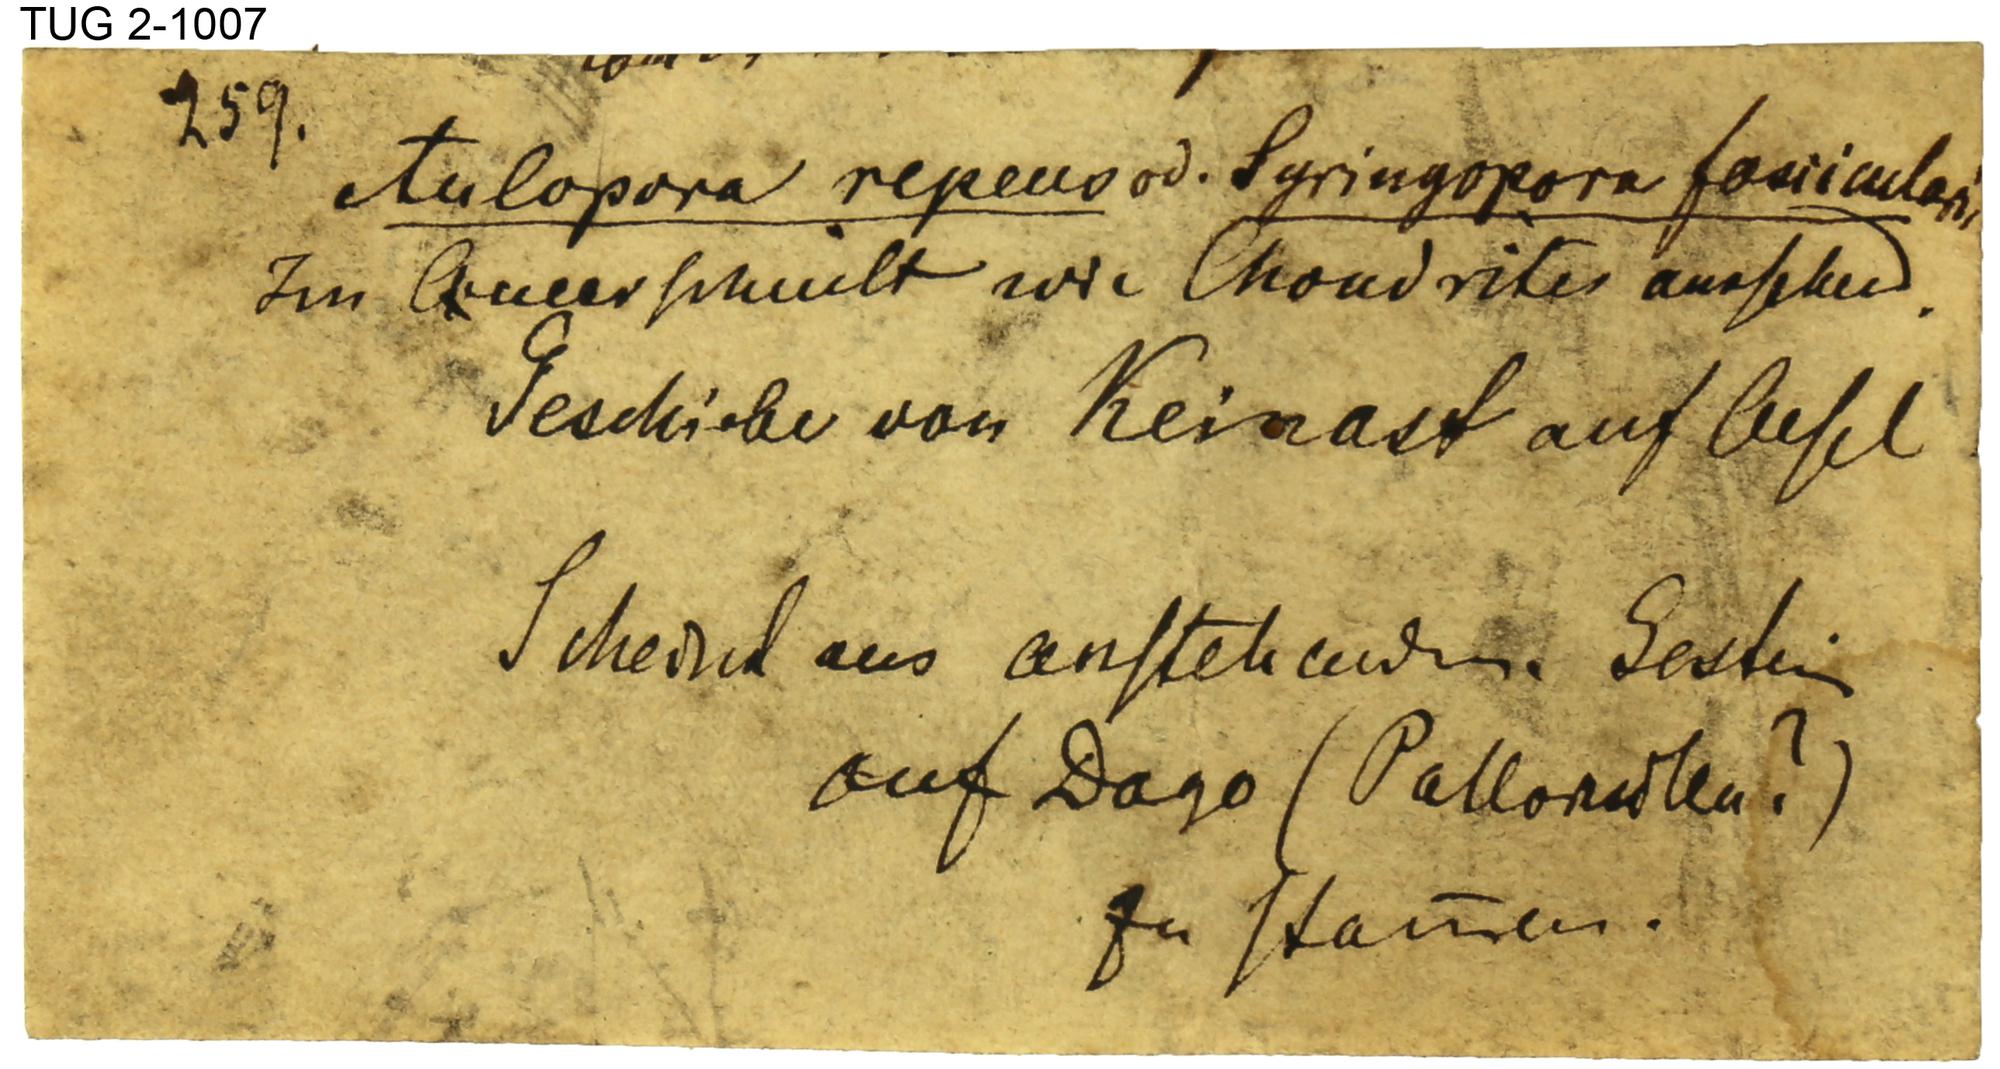 TUG 2-1007
259.
Aulopora repens od. Syringopora fascicularis
Im Querschnitt wie Chondrites aussehend.
Geschiebe von Keinast auf Oesel
Scheint aus anstehendem Gestein
auf Dago (Pallokülla?)
zu stam̅en.